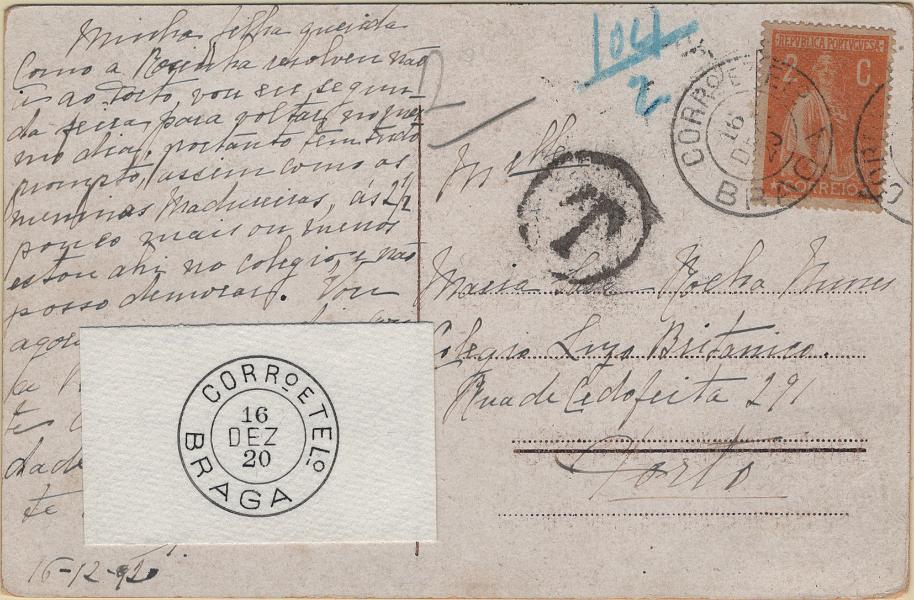 Minha filha querida
Como a Rosinha resolveu não
ir ao Porto, vou eu, segun-
da feira, para voltar no mes-
mo dia, portanto tem tudo
prompto, assim como as
meninas Madureiras, ás 2 1/2
pouco mais ou menos
estou ahi no colegio, e não
posso demorar. Vou
agora
16-12-920
104
2
T
REPUBLICA PORTUGUESA
2 C
CORREIO
CORRO E TELO
16
DEZ
BRAGA
Melle
Maria José Rocha Nunes
Colegio Luzo Britanico.
Rua de Cedofeita 291
Porto
CORRO E TELO
16
DEZ
20
BRAGA